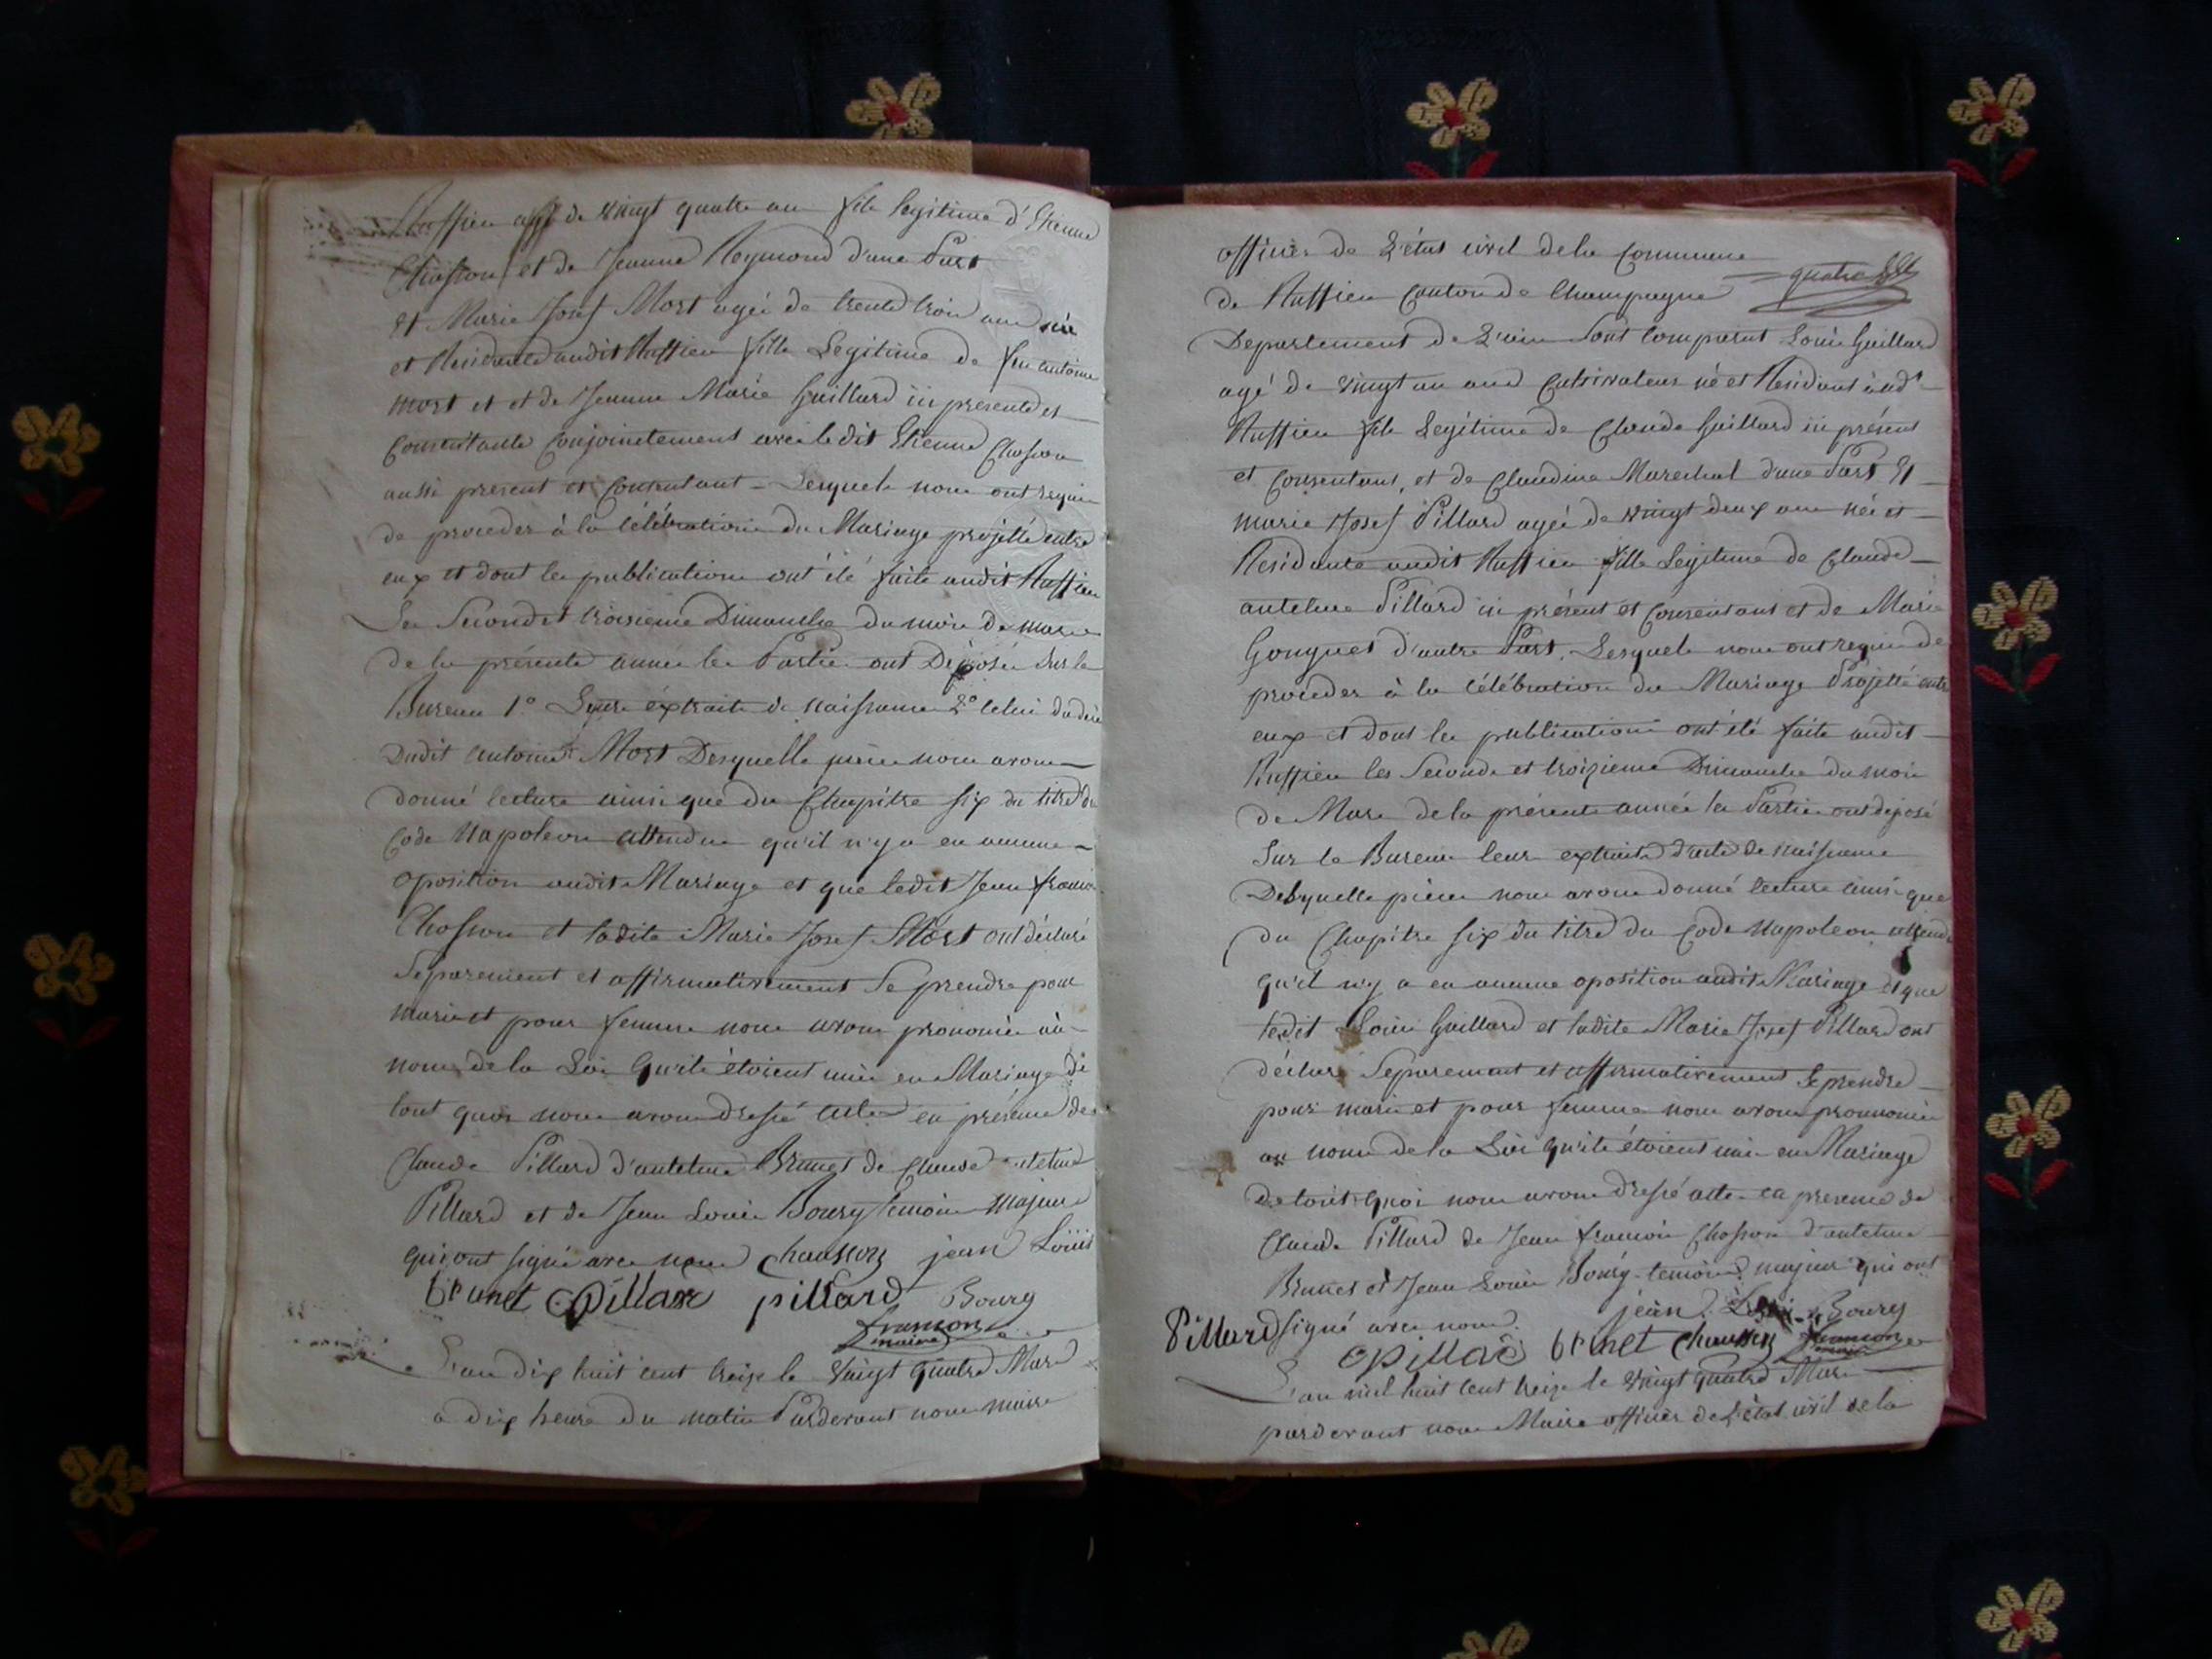 Ruffieu agé de vingt quatre ans fils legitime d'Etienne
Chosson et de Jeanne Reymond d'une Part
Et Marie Josef Mort agée de trente trois ans née
et Residante audit Ruffieu fille Legitime de feu antoine
mort et et de Jeanne Marie Guillard ici presente et
Consentante Conjointement avec le dit Etienne Chosson
aussi present et Consentant - Lesquels nous ont requis
de proceder à la célébration du Mariage projetté entre
eux et dont les publications ont été faite audit Ruffieu
Les Second et troisieme Dimanche du mois de mars
de la présente année les Parties ont Déposés Sur le
Bureau 1.° Leurs éxtraits de naissance 2° celui du décè
Dudit antoine Mort Desquelle pièce nous avons
donné lecture ainsi que du Chapitre six du titre du
Code Napoleon attendu qu'il n'y a eu aucune
oposition audit Mariage et que ledit Jean françois
Chosson et ladite Marie Josef Mort ont déclaré
Separement et affirmativement Se prendre pour
mari et pour femme nous avons prononcé au
nom de la Loi Qu'ils étoient unis en Mariage de
tout quoi nous avons dressé acte en présence de
Claude Pillard d'antelme Brunet de Claude antelme
Pillard et de Jean Louis Bourg temoins majeurs
qui ont signé avec nous chausson jean Loüis
brunet cpillar pillard Bourg
francon
maire
L'an dix huit cent treize le vingt quatre Mars
a dix heure du matin Pardevant nous maire
officier de L'état civil de la Commune
de Ruffieu Canton de Champagne quatre
Departement de L'ain Sont Comparut Louis Guillard
agé de vingt un ans Cultivateur né et Residant aud.t
Ruffieu fils Legitime de Claude Guillard ici présent
et Consentant, et de Claudine Marechal d'une Part Et
marie Josef Pillard agée de vingt deux ans née et
Residante audit Ruffieu fille Legitime de Claude
antelme Pillard ici présent et Consentant et de Marie
Gonguet d'autre Part. Lesquels nous ont requis de
proceder à la célébration du Mariage Projetté entre
eux et dont les publications ont été faite audit
Ruffieu les Seconde et troizieme Dimanche du mois
de Mars de la présente année les Parties ont déposé
Sur le Bureau leurs extraits d'acte de naissance
Desquelle pièces nous avons donné lecture ainsi que
du Chapitre six du titre du Code Napoleon attendu
qu'il n'y a eu aucune oposition audit Mariage et que
ledit Louis Guillard et ladite Marie Josef Pillard ont
déclaré Separemant et affirmativement Se prendre
pour mari et pour femme nous avons prononcé
au nom de la Loi qu'ils étoient unis en Mariage
de tout quoi nous avons dressé acte en presence de
Claude Pillard de Jean françois Chosson d'antelme
Brunet et Jean Louis Bourg temoins majeur qui ont
Pillard signé avec nous. jean Louis Bourg
cpillar brunet chausson francon
maire
L'an mil huit cent treize le vingt quatre Mars
pardevant nous Maire officier de L'état civil de la